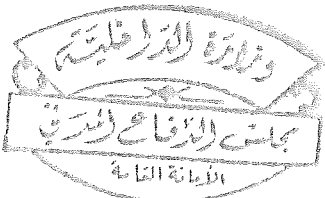 وزارة الداخلية
مجلس الدفاع المدني
الامانة العامة